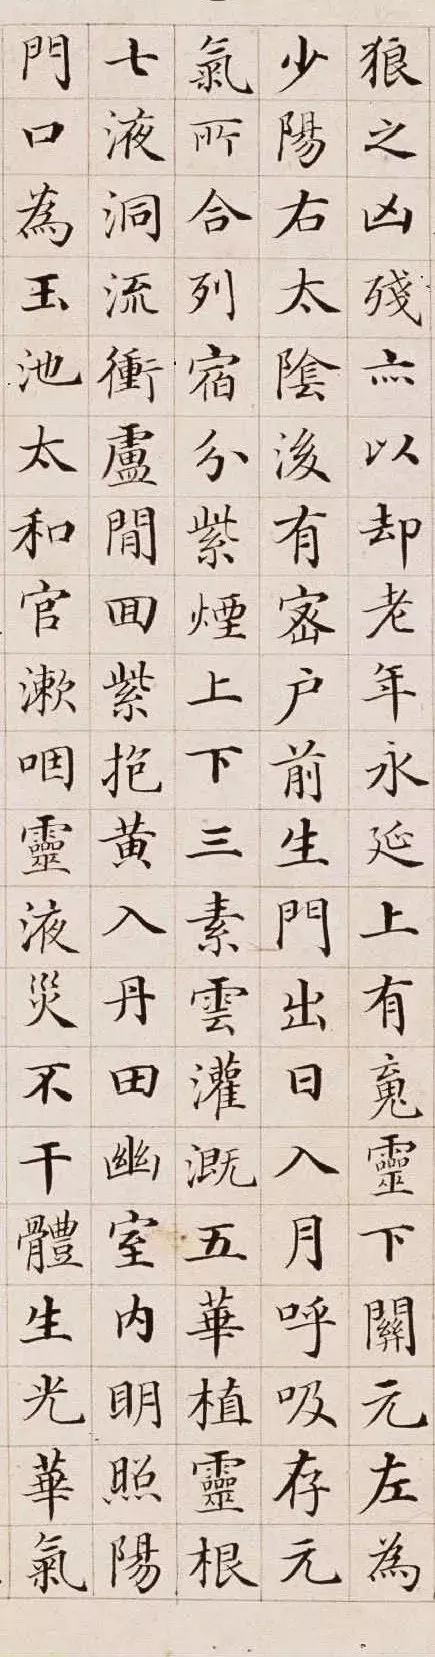 狼之凶殘亦以却老年永延上有䰟靈下關元左為
少陽右太陰後有密户前生門出日入月呼吸存元
氣所合列宿分紫煙上下三素雲灌溉五華植靈根
七液洞流衝盧間回紫抱黄入丹田幽室内明照陽
門口為玉池太和官漱咽靈液災不干體生光華氣